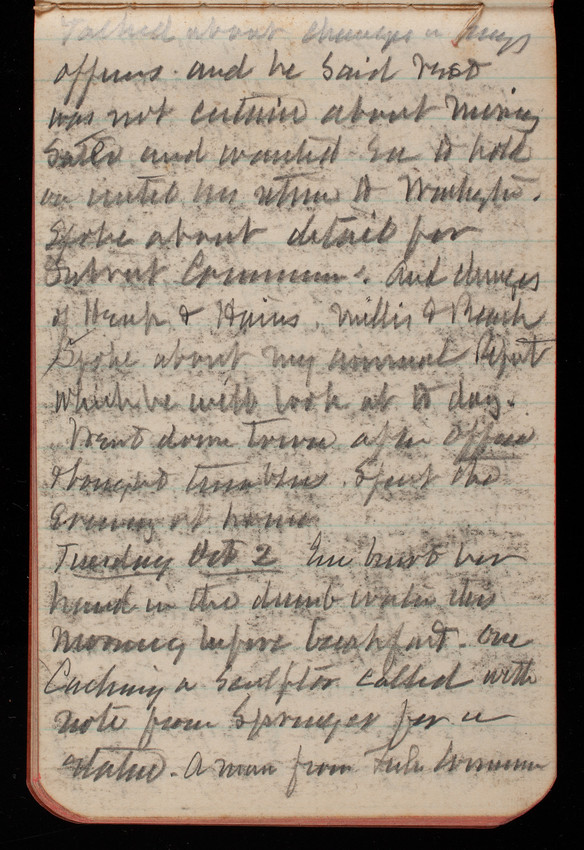 Talked about changes in
officers and he said
was not certain about moving
and wanted to hold
on until his return to Washgtn.
Spoke about detail for
Detroit Commrs. and changes
of Heap & Hains, Millis & Roach
Spoke about my annual Report
which he will look at to day.
Went down town after office
& bought tumblers. Spent the
Evening at home
Tuesday Oct 2 hurt her
hand in the dumb waiter this
Morning before breakfast. One
a sculptor called with
note from Springer for a
statue. A man from Fish